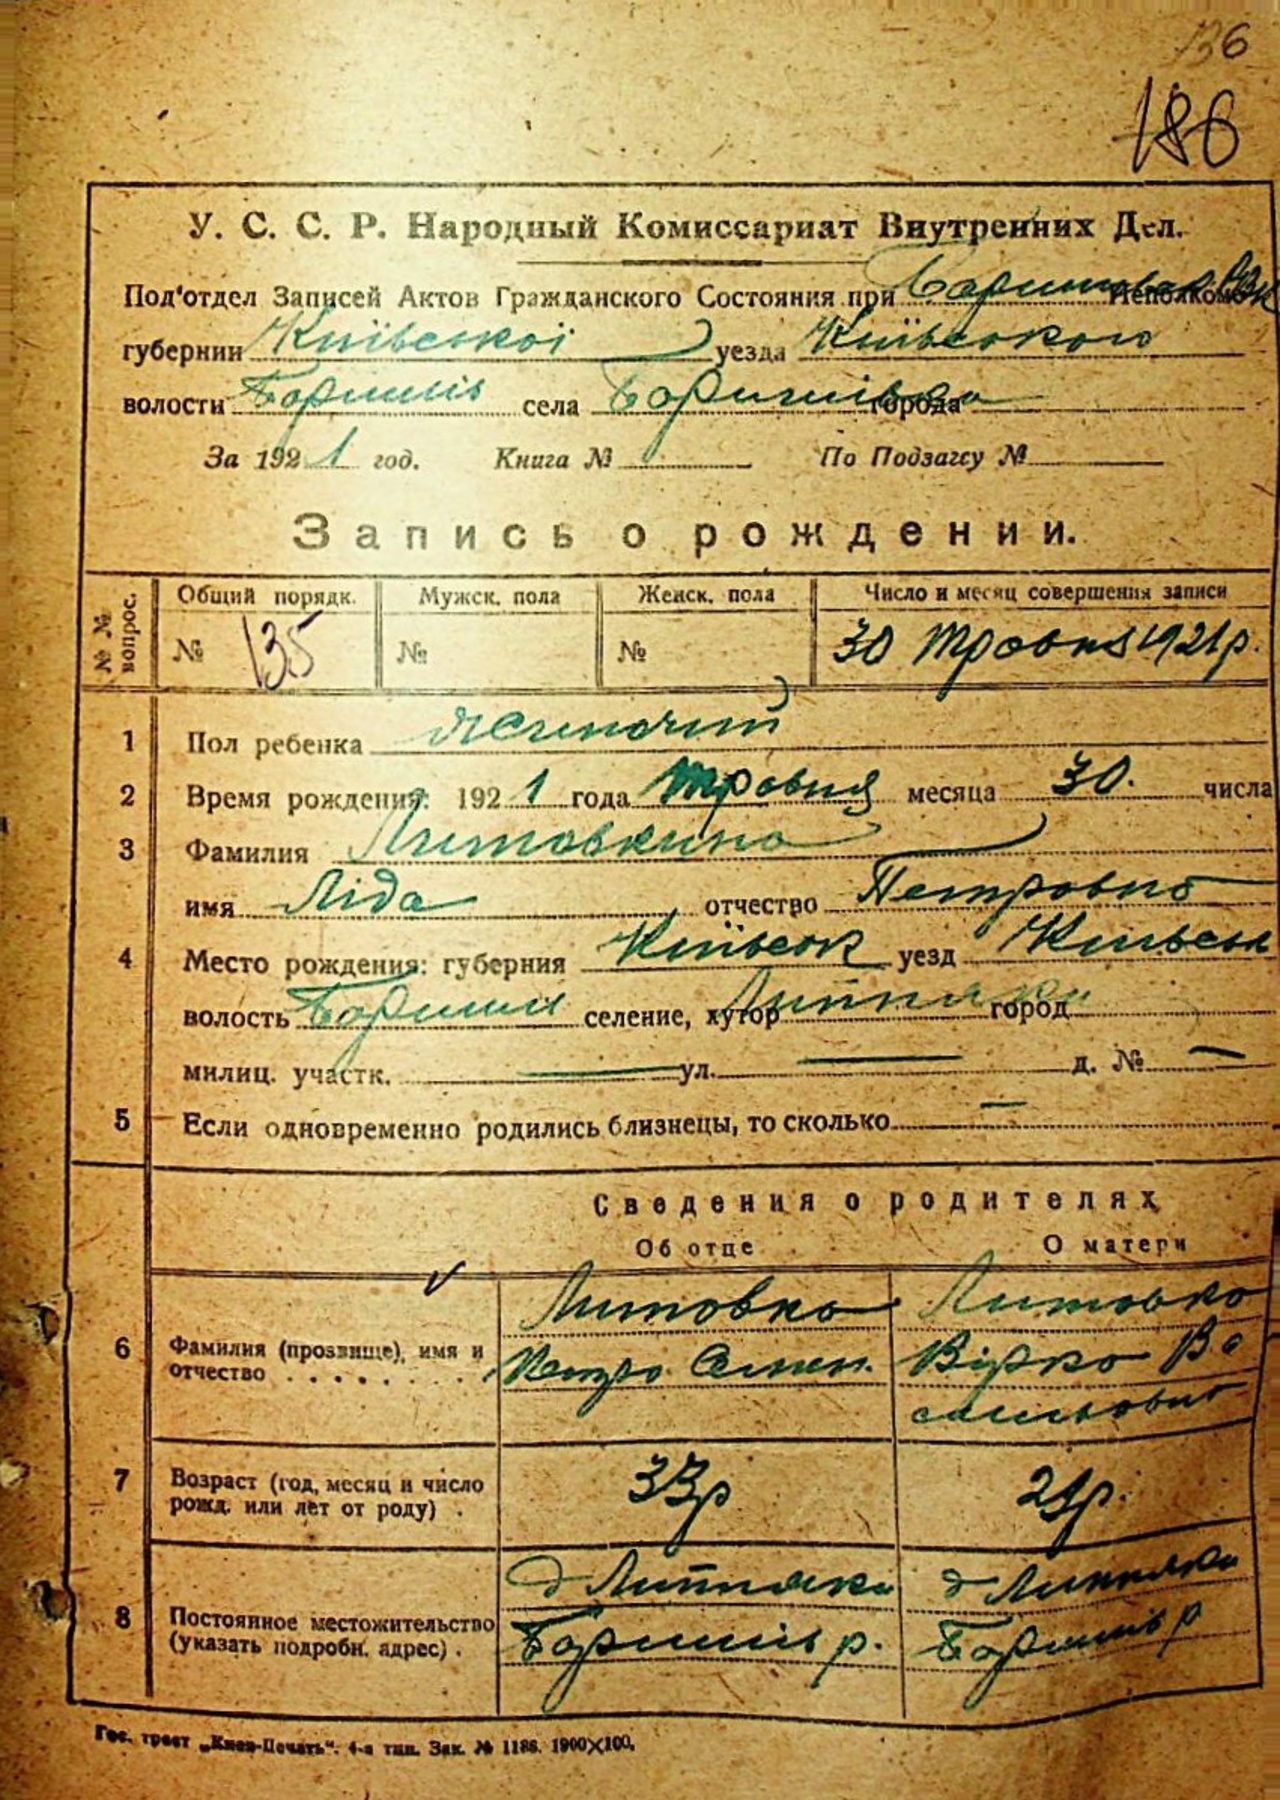 136
186
У. С. С. Р. Народный Комиссариат Внутренних Дел.
Под'отдел Записей Актов Гражданского Состояния при Исполкоме
губернии Київської уезда Київського
волости Баришів села Баришівка города
За 1921 год. Книга № По Подзагсу №
Запись о рождении.
№ № вопрос. Общий порядк. Мужск. пола Женск. пола Число и месяц совершения записи
№ 135 № № 30 Травня 1921 р.
1 Пол ребенка жіночий
2 Время рождения: 1921 года Травня месяца 30. числа
3 Фамилия Литовкина
имя Ліда отчество Петровна
4 Место рождения: губерния Київськ уезд Київськ
волость Баришів селение, хутор Липняки город
милиц. участк. — ул. — д. № —
5 Если одновременно родились близнецы, то сколько —
Сведения о родителях
Об отце О матери
6 Фамилия (прозвище), имя и отчество Литовка Литовко
Петро Семен. Вірко Ва
сильовна
7 Возраст (год, месяц и число рожд. или лет от роду) 33 р 21 р.
8 Постоянное местожительство (указать подробн. адрес) д Липняки д Липняки
Баришів р. Баришів р
Гос. трест „Киев-Печать". 4-я тип. Зак. № 1186. 1900×100.